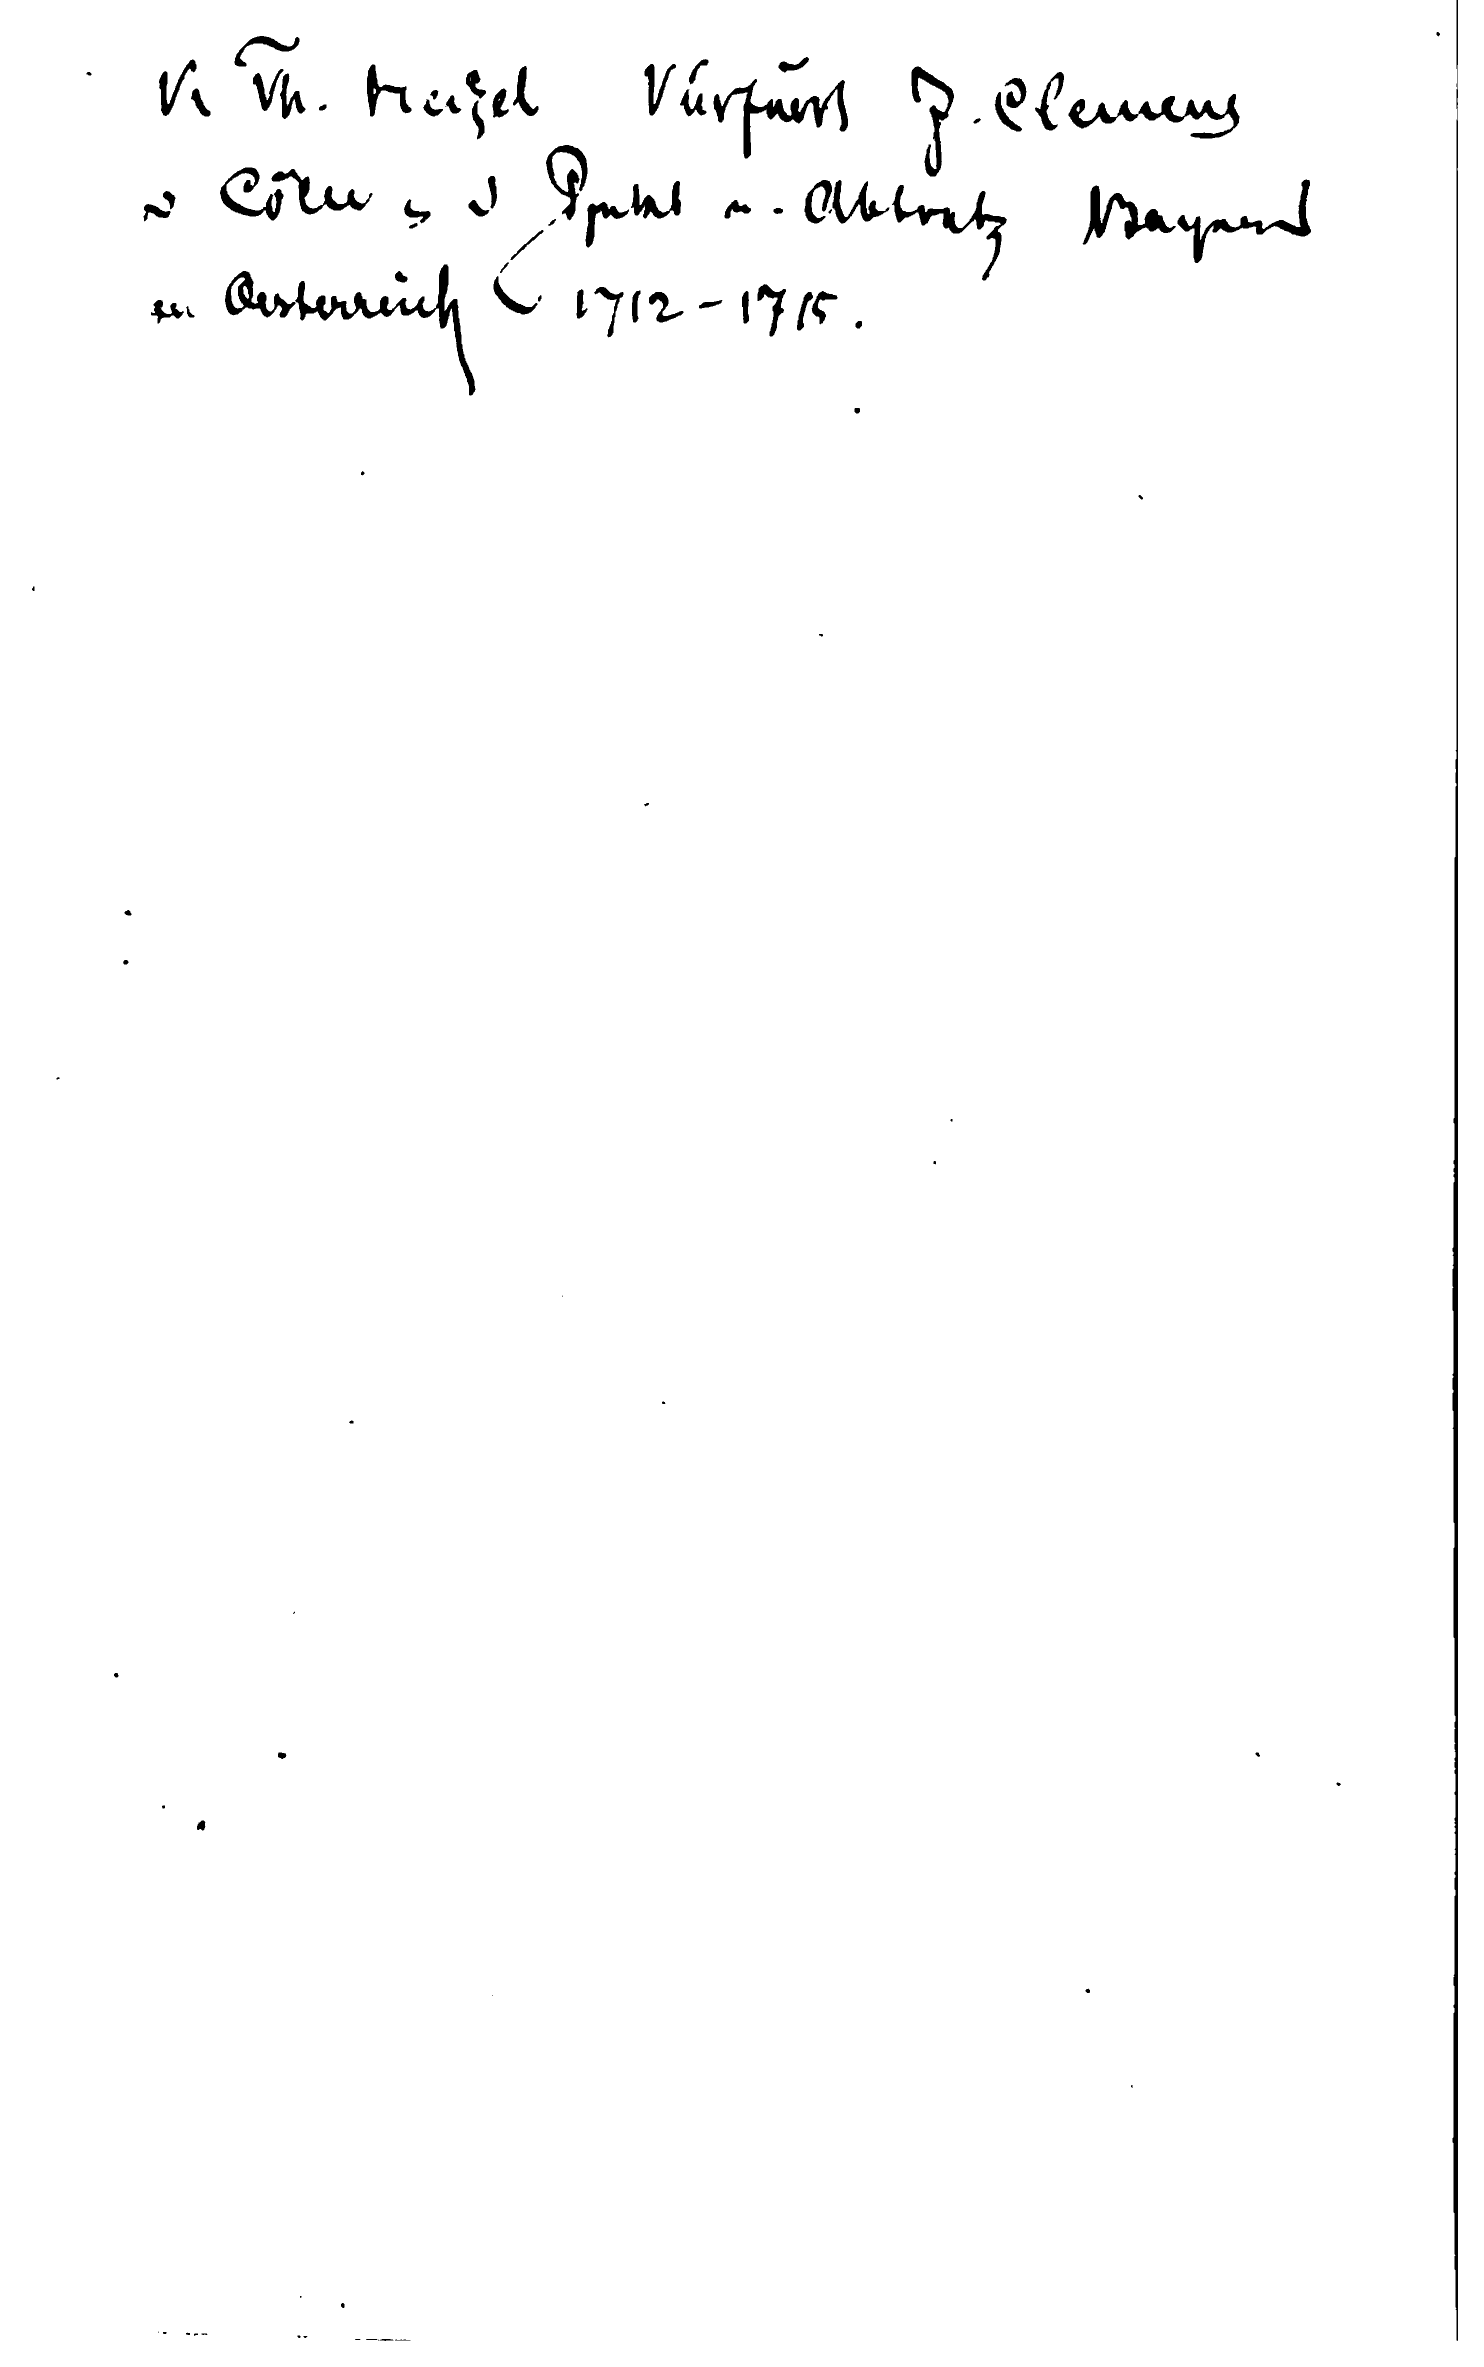 K Th. Heigel Kurfürst J. Clemens
v Cöln u d Projekt e. Abtretg Bayerns
an Oesterreich 1712-1715.